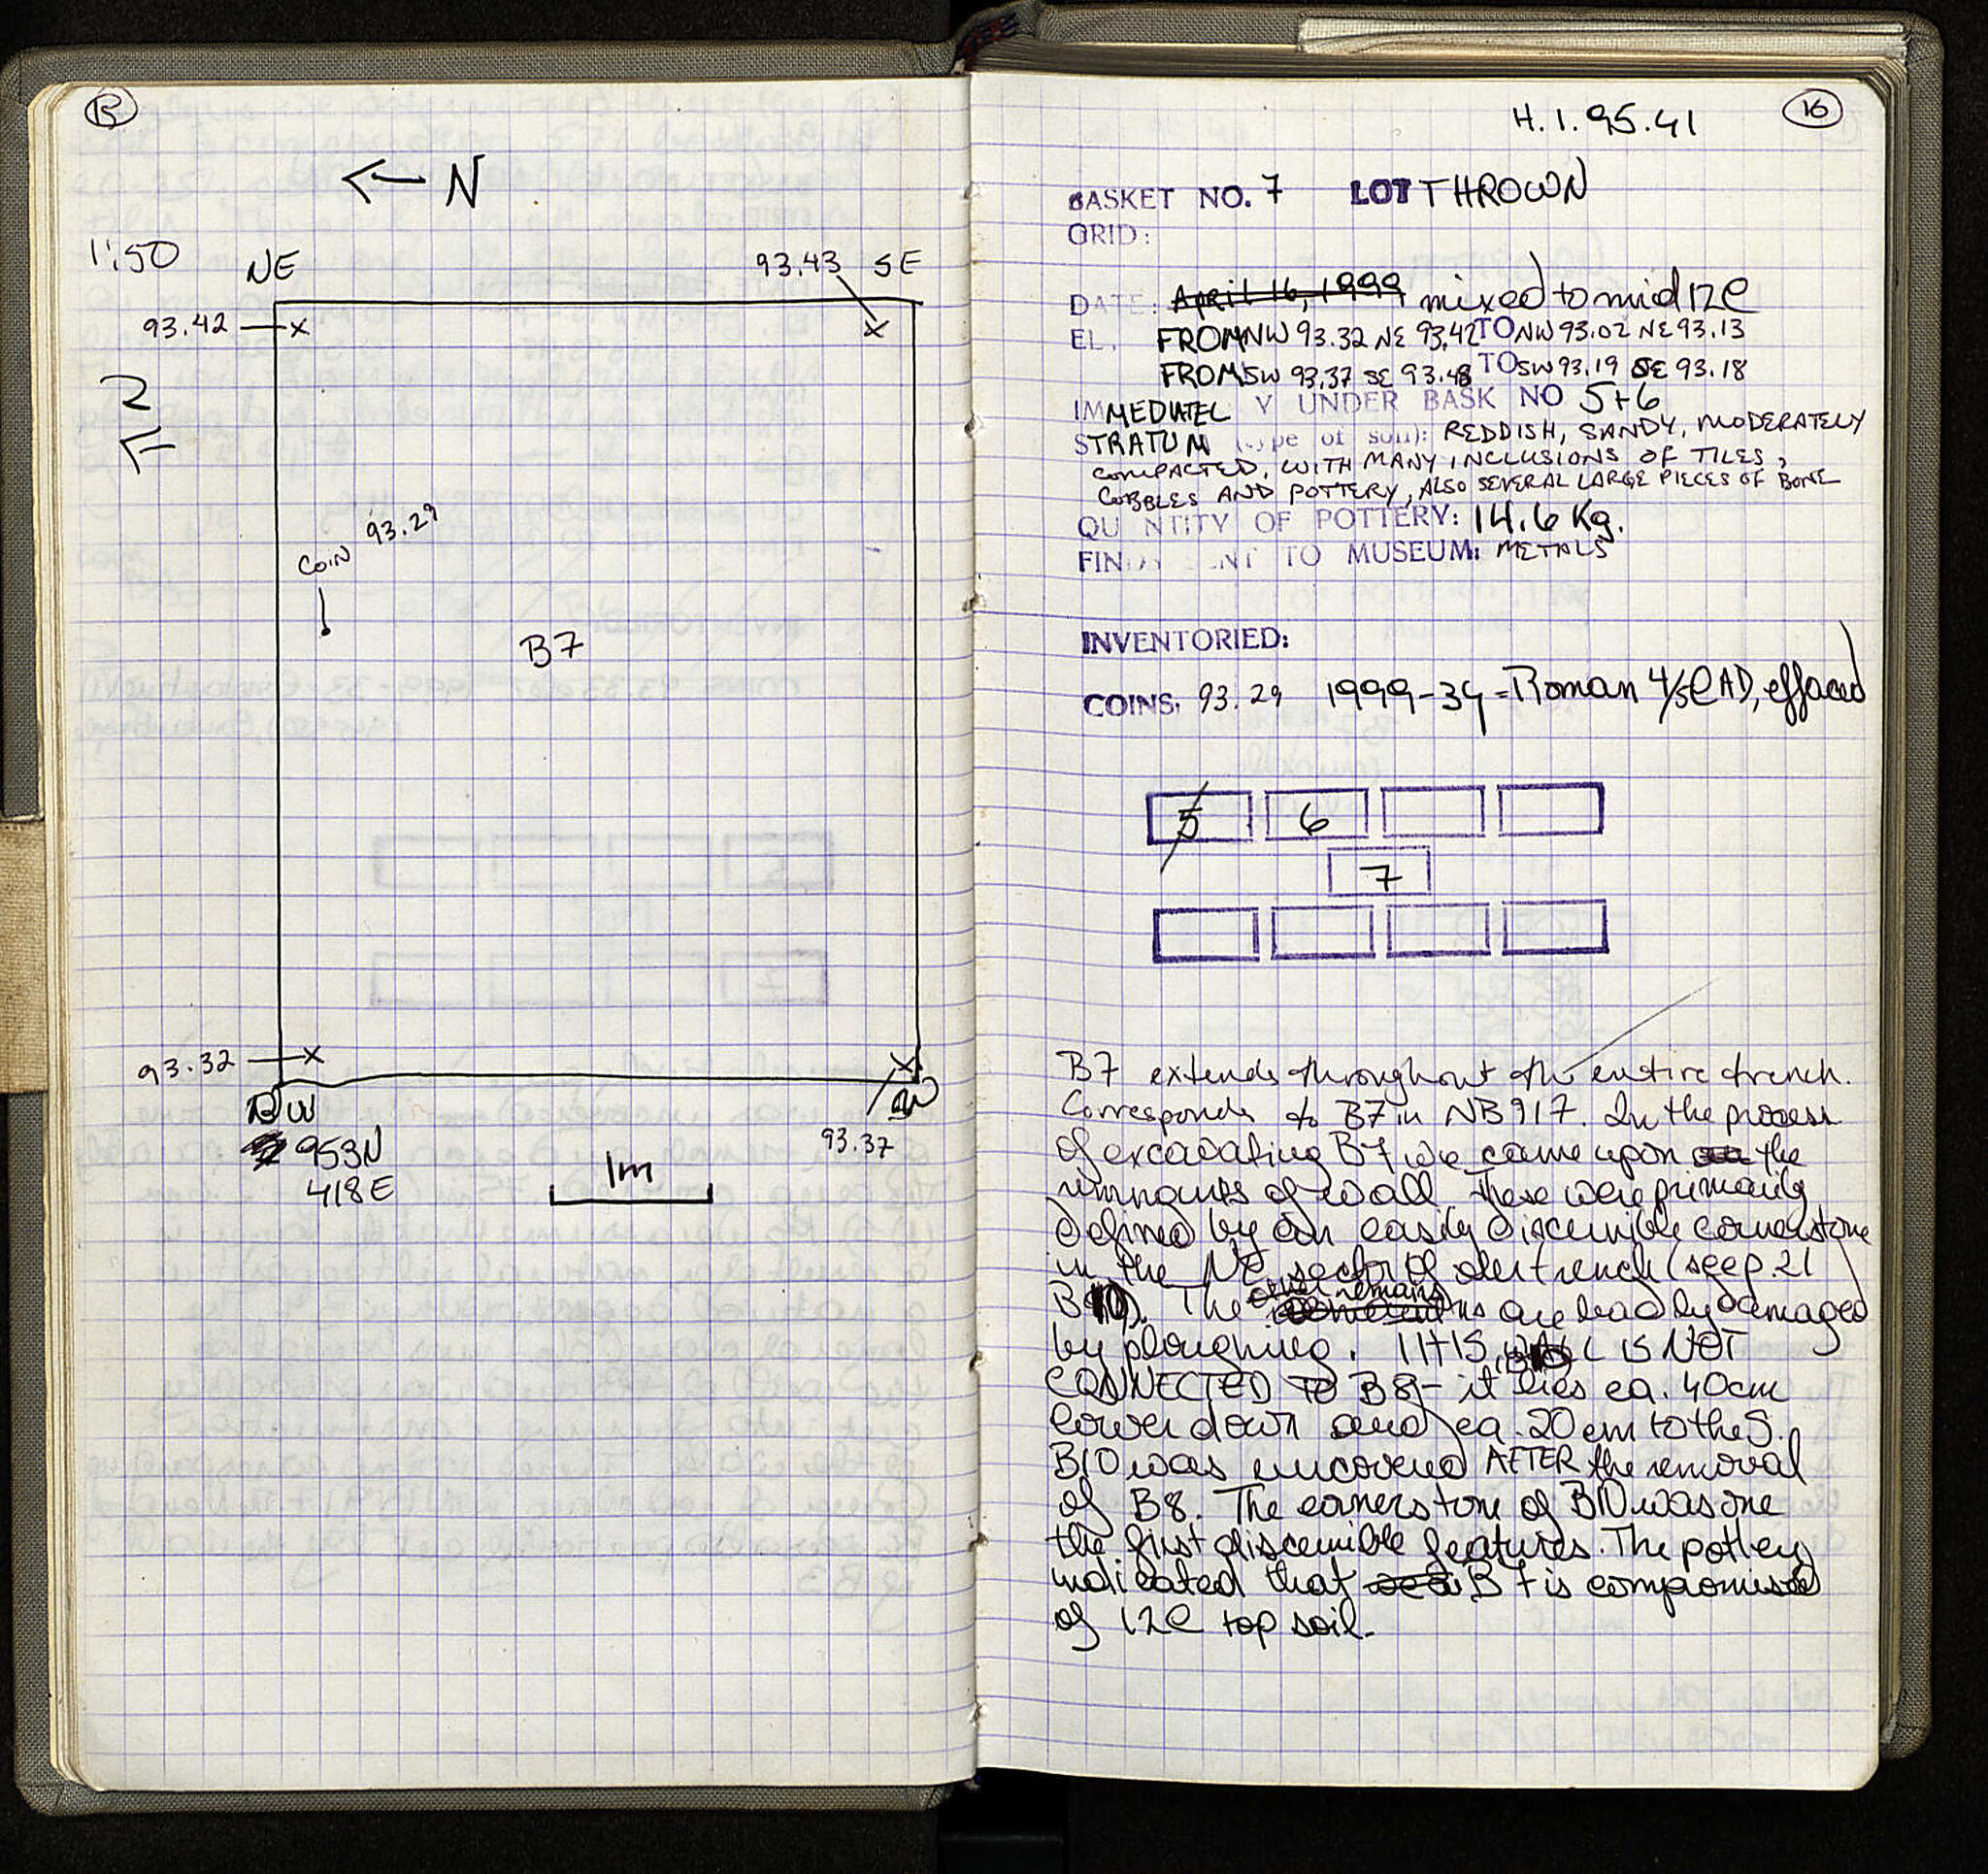 15
← N
1:50 NE 93.43 SE
93.42
N
93.29
COIN
B7
93.32
NW SW
953N 93.37
418E 1m
H.1.95.41 16
BASKET NO. 7 LOT THROWN
GRID:
DATE: April 16, 1999 mixed to mid 12C
EL. FROM NW 93.32 NE 93.42 TO NW 93.02 NE 93.13
FROM SW 93.37 SE 93.48 TO SW 93.19 SE 93.18
IMMEDIATEL Y UNDER BASK NO 5+6
STRATUM (type of soil): REDDISH, SANDY, MODERATELY
COMPACTED, WITH MANY INCLUSIONS OF TILES,
COBBLES AND POTTERY, ALSO SEVERAL LARGE PIECES OF BONE
QU NTITY OF POTTERY: 14.6 Kg.
FINDS ENT TO MUSEUM: METALS
INVENTORIED:
COINS: 93.29 1999-34 = Roman 4/5C AD, effaced
5 6
7
B7 extends throughout the entire trench.
Corresponds to B7 in NB 917. In the process
of excavating B7 we came upon the
remnants of wall. These were primarily
defined by an easily discernible cornerstone
in the NE sector of the trench (see p. 21
B10). The other remains are badly damaged
by ploughing. THIS WALL IS NOT
CONNECTED TO B8 - it lies ca. 40cm
lower down and ca. 20cm to the S.
B10 was uncovered AFTER the removal
of B8. The cornerstone of B10 was one
the first discernible features. The pottery
indicated that B7 is compromised
of 12C top soil.